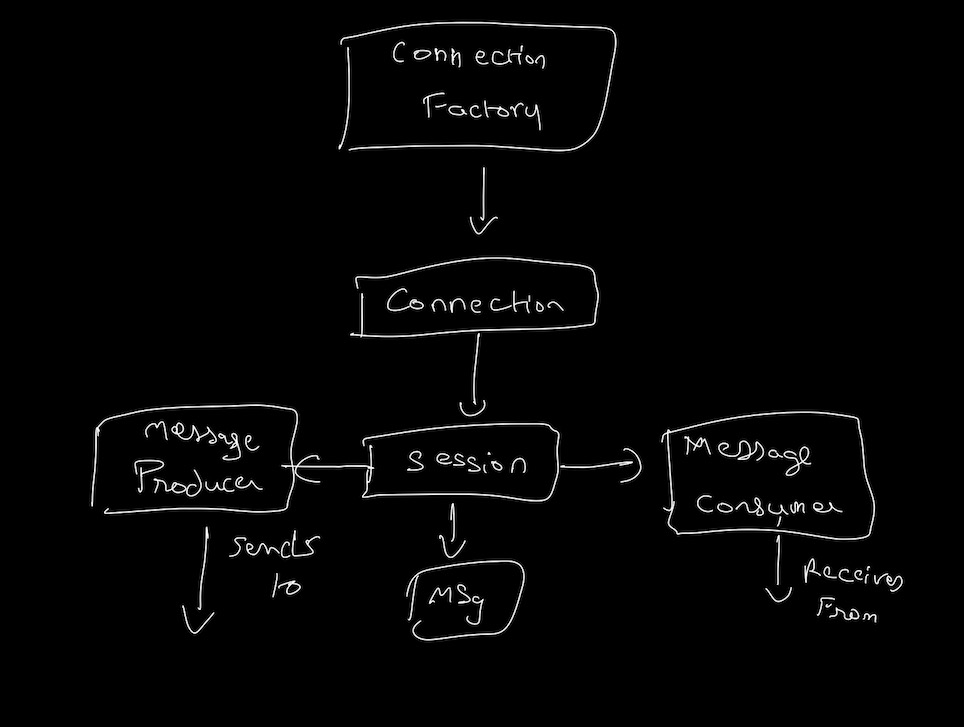 Connection
Factory
Connection
Message
Producer
Session
Message
Consumer
Sends
to
MSg
Receives
From